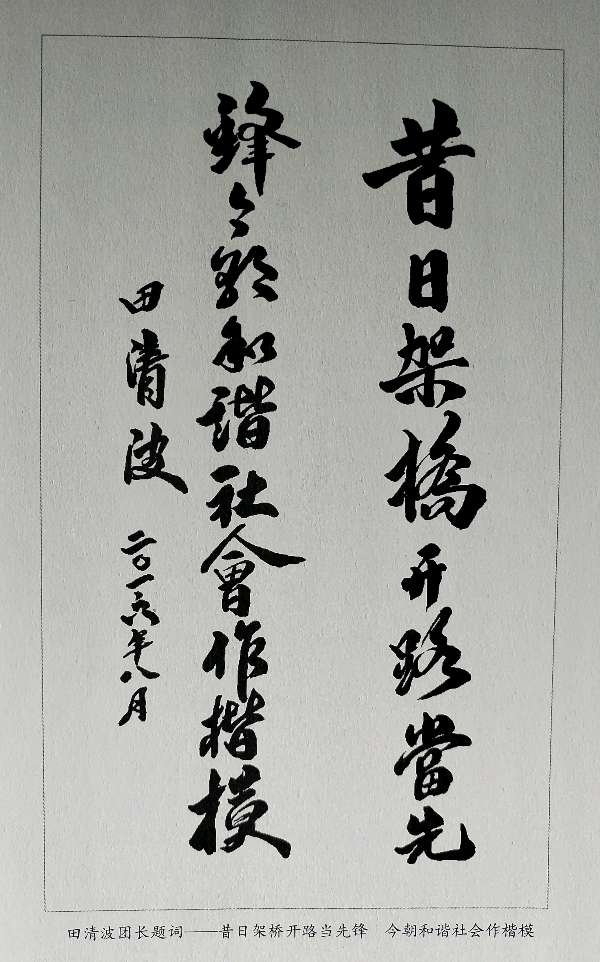 昔日架橋开路當先
鋒今朝和谐社會作楷模
田清波
二〇一六年八月
田清波团长题词——昔日架桥开路当先锋 今朝和谐社会作楷模